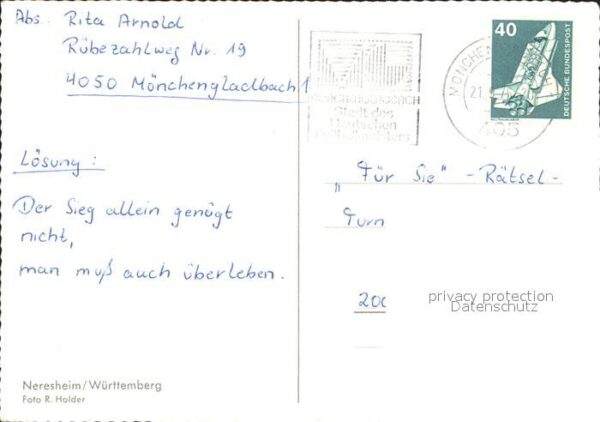 Abs: Rita Arnold
Rübezahlweg Nr. 19
4050 Mönchengladbach 1
Lösung:
Der Sieg allein genügt
nicht,
man muß auch überleben.
Neresheim/Württemberg
Foto R. Holder
40
DEUTSCHE BUNDESPOST
MÖNCHEN
21.
405
Stadt des
„Für Sie" -Rätsel-
Turn
200
privacy protection
Datenschutz